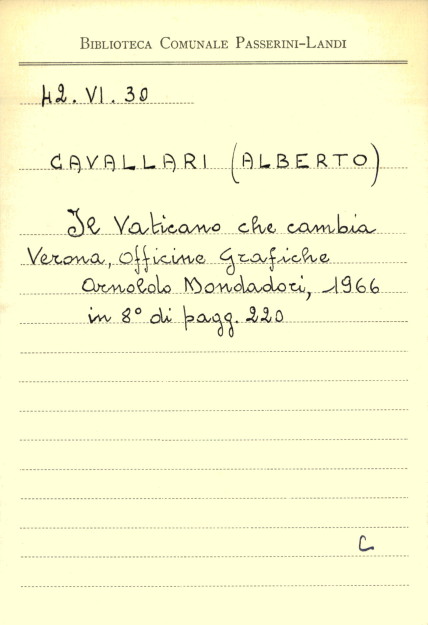 BIBLIOTECA COMUNALE PASSERINI-LANDI
42. VI. 30
CAVALLARI (ALBERTO)
Il Vaticano che cambia
Verona, Officine Grafiche
Arnoldo Mondadori, 1966
in 8° di pagg. 220
C